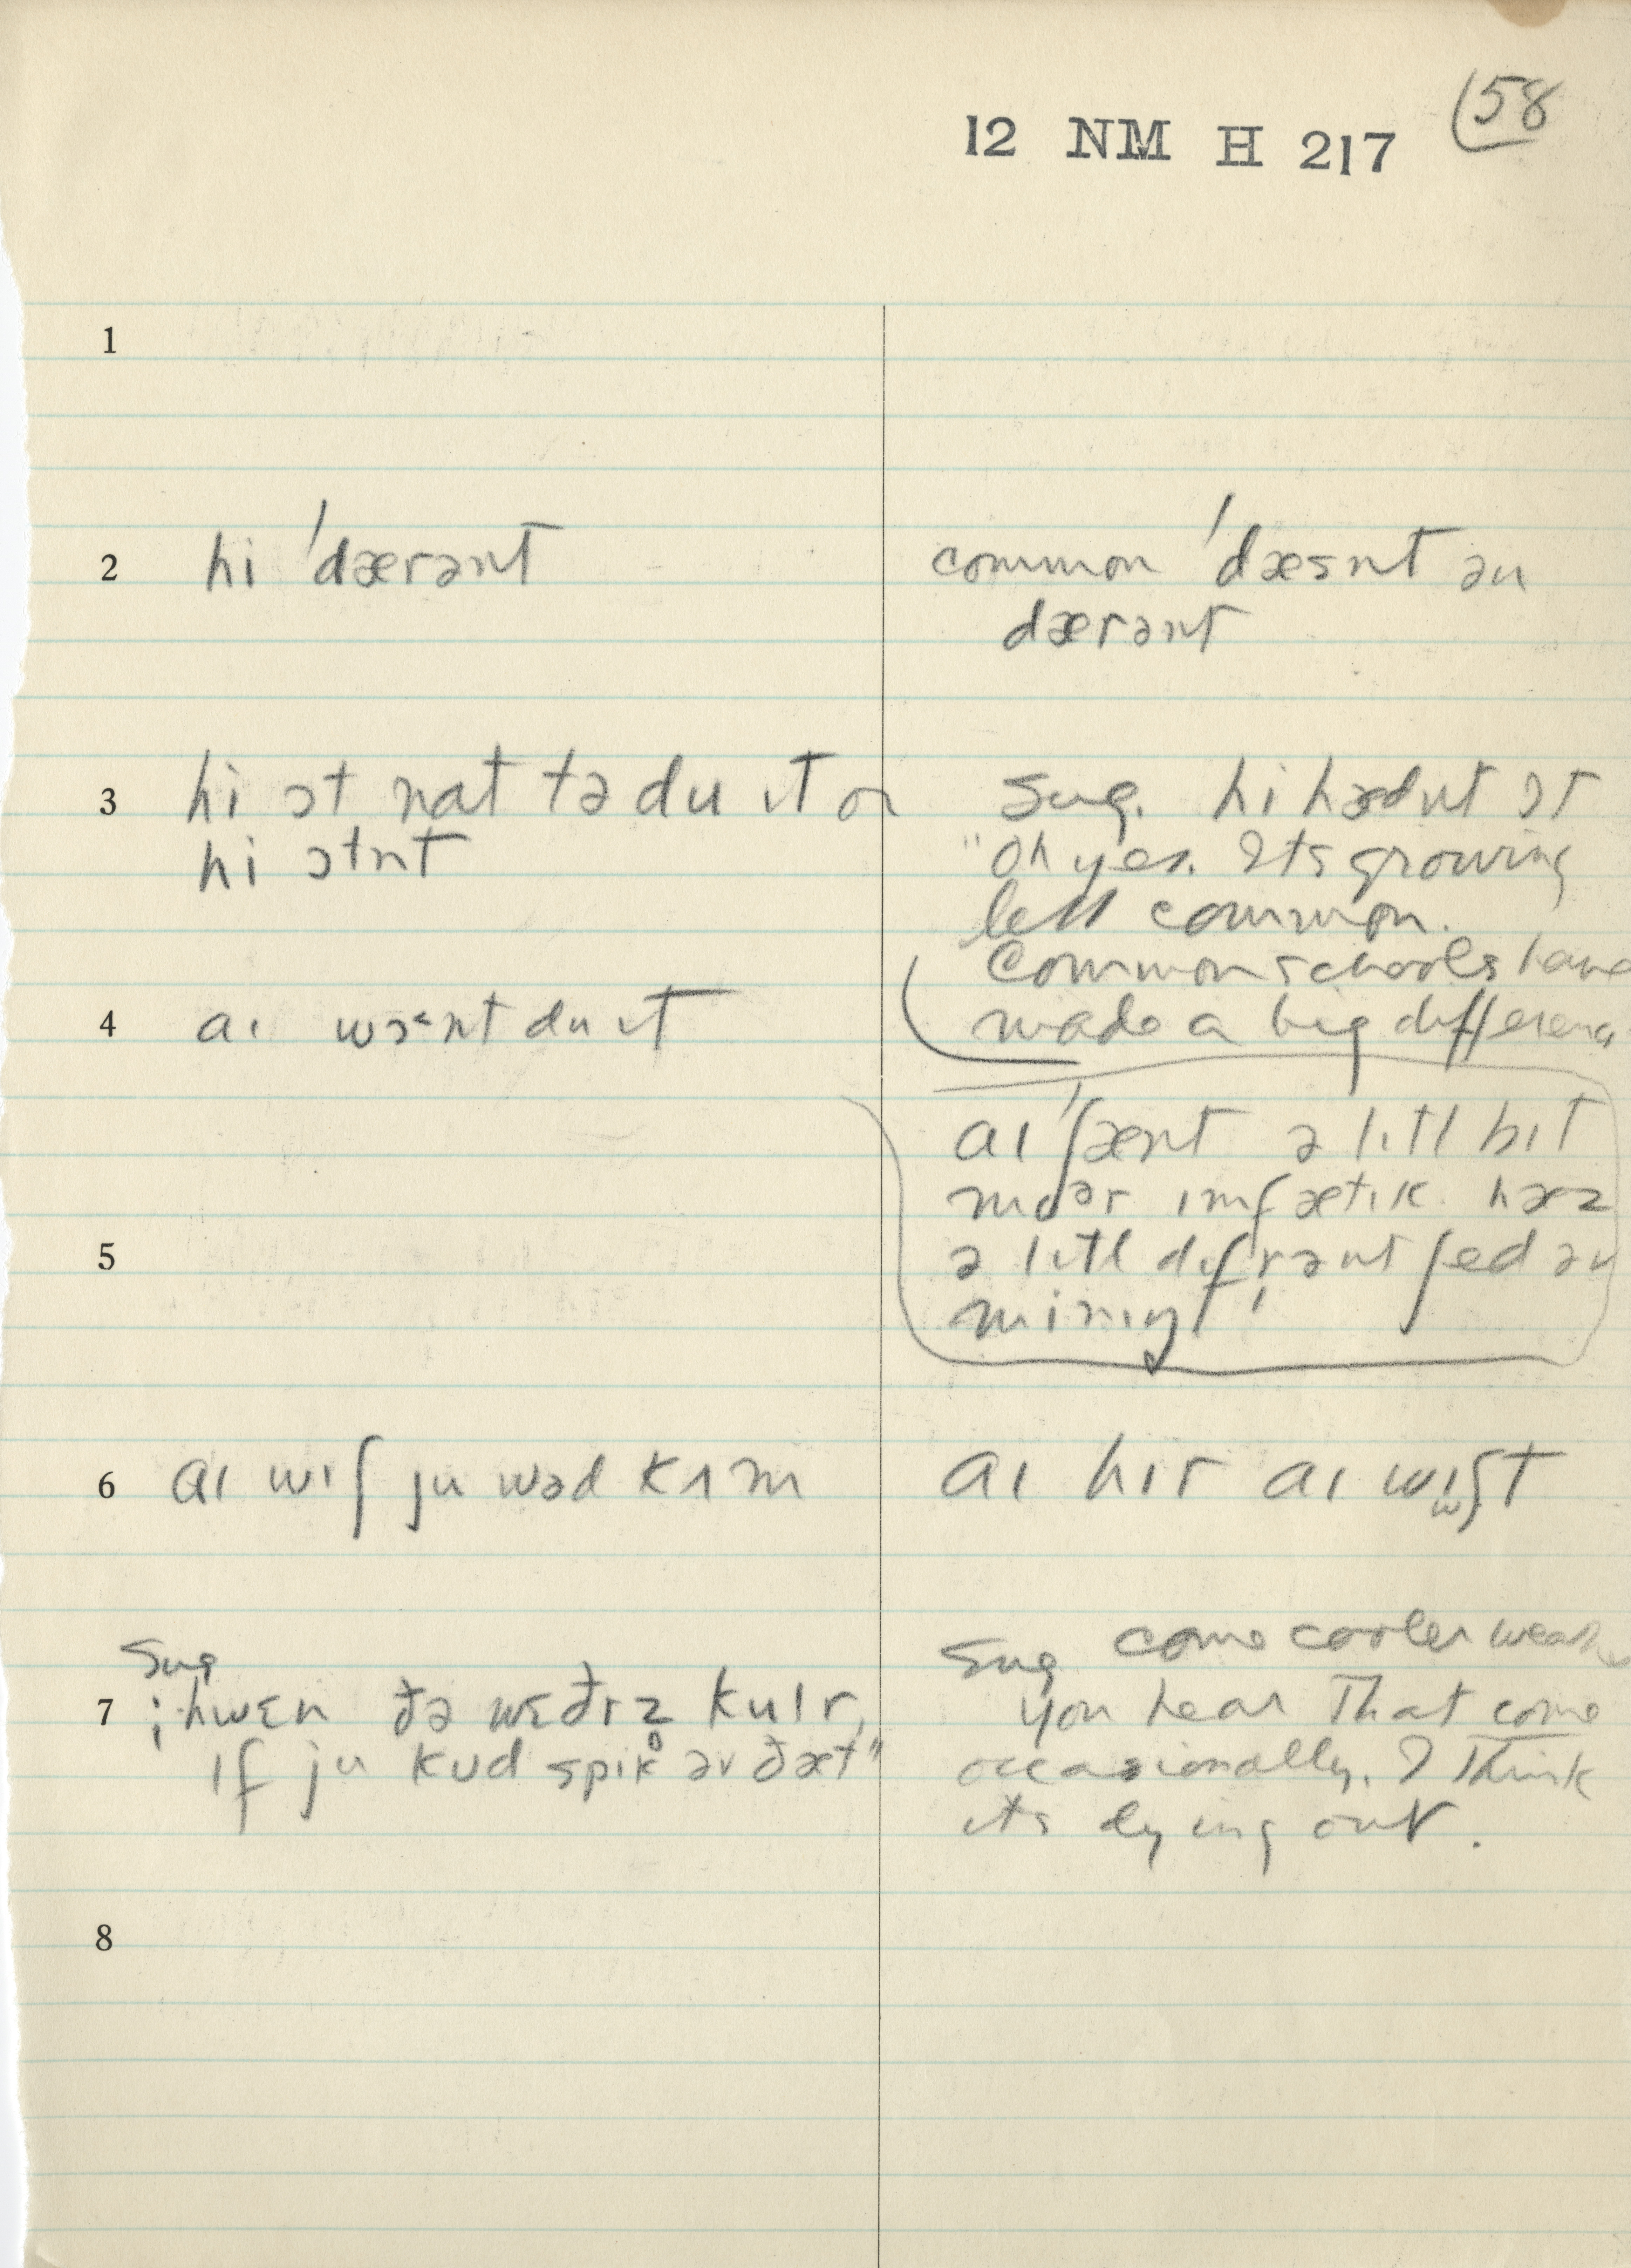 12 NM H 217 (58
1
2 hi 'dærənt
common 'dæsnt ən
dærənt
3 hi ɔt nat tə du ɪt or
hi ɔtnt
Sug. hi hædnt ɔt
"Oh yes. Its growing
less common.
Common schools have
made a big difference
4 aɪ wɔ˂nt du ɪt
aɪ 'ʃænt ə lɪtl bɪt
moər ɪmfætɪk. hæz
ə lɪtl dɪfrənt ʃed əv
minɪŋ
5
6 aɪ wɪʃ ju wəd kʌm
aɪ hɪr aɪ wɪʃt
Sug
7 hwɛn ðə wɛðrz̥ kulr,
ɪf ju kʊd spik əv ðæt"
Sug come cooler
you hear that come
occasionally. I think
its dying out.
8